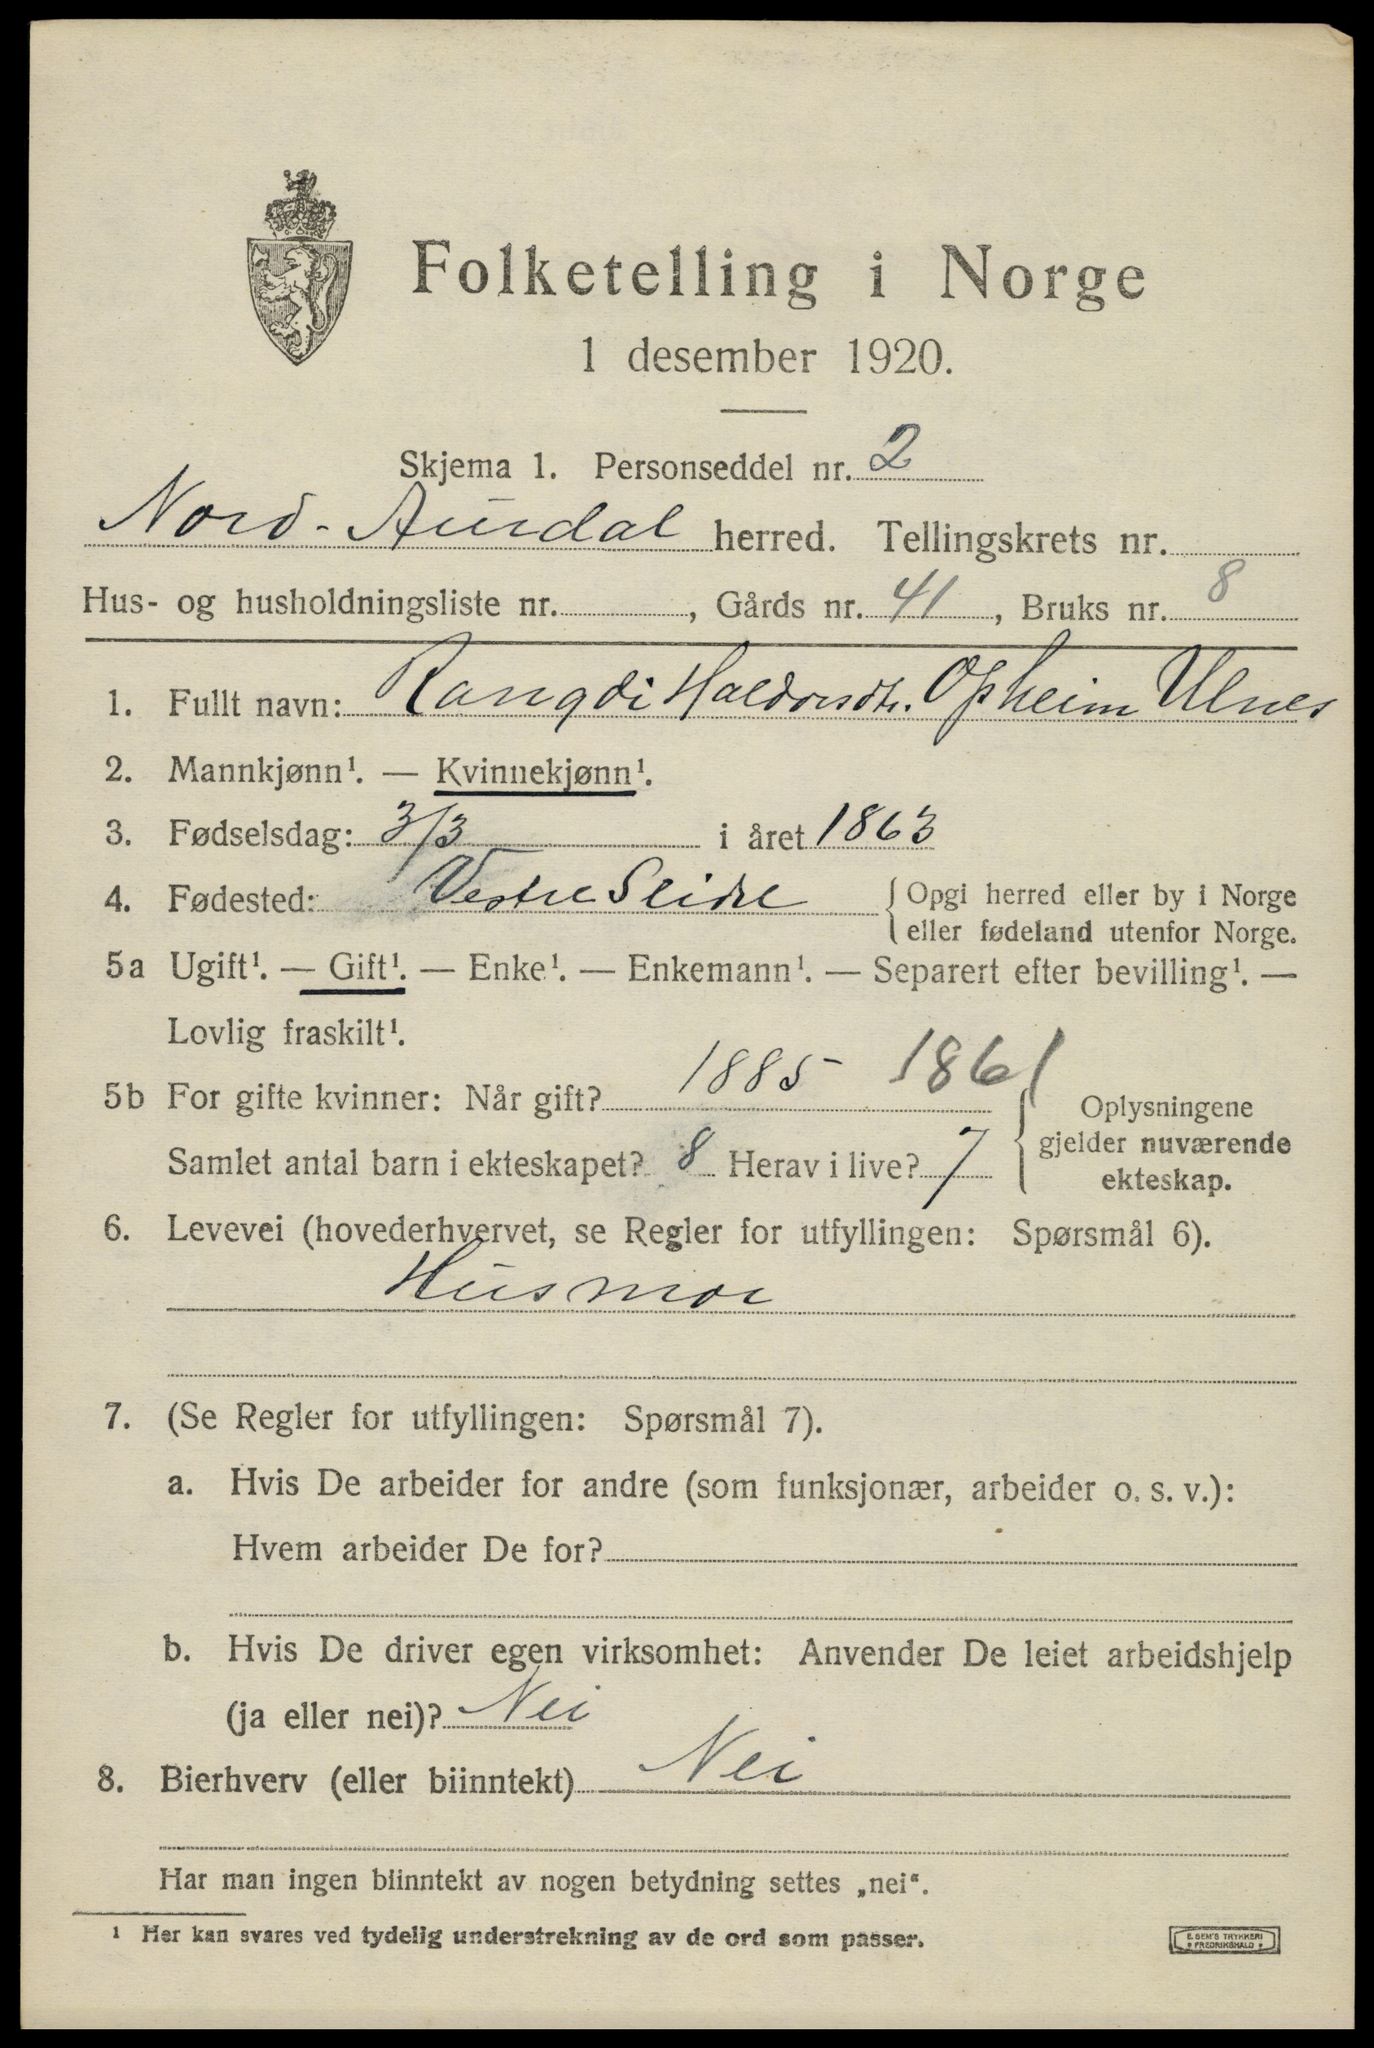 Folketelling i Norge
1 desember 1920.
Skjema 1. Personseddel nr. 2
Nord-Aurdal herred. Tellingskrets nr.
Hus- og husholdningsliste nr. , Gårds nr. 41, Bruks nr. 8
1. Fullt navn: Rangdi Haldorsdtr. Opheim Ulnes
2. Mannkjønn¹. — Kvinnekjønn¹.
3. Fødselsdag: 3/3 i året 1863
4. Fødested: Vestre Slidre { Opgi herred eller by i Norge
eller fødeland utenfor Norge.
5a Ugift¹. — Gift¹. — Enke¹. — Enkemann¹. — Separert efter bevilling¹. —
Lovlig fraskilt¹.
5b For gifte kvinner: Når gift? 1885 1861
Samlet antal barn i ekteskapet? 8 Herav i live? 7
{ Oplysningene
gjelder nuværende
ekteskap.
6. Levevei (hovederhvervet, se Regler for utfyllingen: Spørsmål 6).
Husmor
7. (Se Regler for utfyllingen: Spørsmål 7).
a. Hvis De arbeider for andre (som funksjonær, arbeider o. s. v.):
Hvem arbeider De for?
b. Hvis De driver egen virksomhet: Anvender De leiet arbeidshjelp
(ja eller nei)? Nei
8. Bierhverv (eller biinntekt) Nei
Har man ingen biinntekt av nogen betydning settes „nei“.
¹ Her kan svares ved tydelig understrekning av de ord som passer.
E. SEM'S TRYKKERI
FREDRIKSHALD